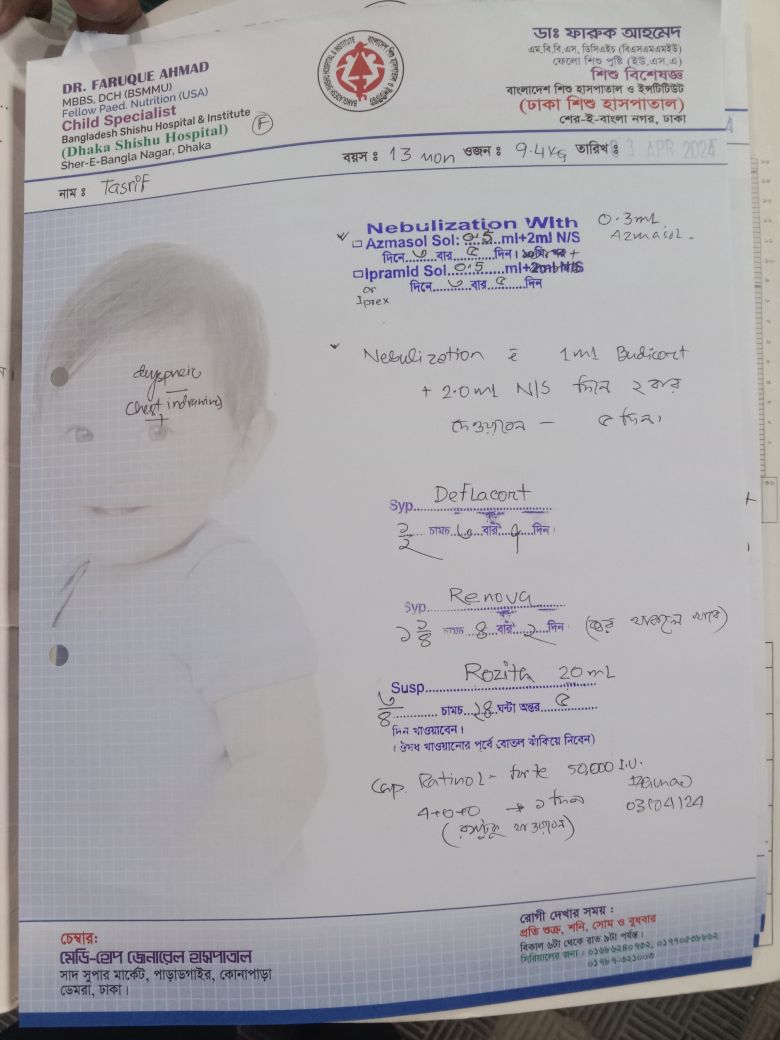 DR. FARUQUE AHMAD
MBBS, DCH (BSMMU)
Fellow Paed. Nutrition (USA)
Child Specialist
Bangladesh Shishu Hospital & Institute
(Dhaka Shishu Hospital)
Sher-E-Bangla Nagar, Dhaka
F
ডাঃ ফারুক আহমেদ
এম.বি.বি.এস, ডিসিএইচ (বিএসএমএমইউ)
ফেলো শিশু পুষ্টি (ইউ.এস.এ)
শিশু বিশেষজ্ঞ
বাংলাদেশ শিশু হাসপাতাল ও ইন্সটিটিউট
(ঢাকা শিশু হাসপাতাল)
শের-ই-বাংলা নগর, ঢাকা
নাম : Tasrif
বয়স : 13 mon ওজন : 9.4 KG তারিখ : 3 APR 2024
Nebulization With
Azmasol Sol: 0.5 ml+2ml N/S
দিনে ৩ বার ৫ দিন।
0.3mL
Azmasol.
Ipramid Sol 0.5 ml+2ml N/S
or
Iprex
দিনে ৩ বার ৫ দিন
dyspneic
Chest indrawing
+
Nebulization c̄ 1ml Budicort
+ 2.0ml N/S দিনে ২ বার
৫ দিন।
Syp. Deflacort
১/২ চামচ বার দিন।
Syp. Renova
১ ১/৪ চামচ ৪ বার ২ দিন। (জ্বর থাকলে খাবে)
Susp. Rozith 20 mL
৩/৪ চামচ ২৪ ঘন্টা অন্তর ৫
দিন খাওয়াবেন।
(ঔষধ খাওয়ানোর পূর্বে বোতল ঝাঁকিয়ে নিবেন)
Cap. Ratinol - forte 50,000 I.U.
4+0+0 → ১ দিন
03/04/24
চেম্বার:
মেডি-হোপ জেনারেল হাসপাতাল
সাদ সুপার মার্কেট, পাড়াডগাইর, কোনাপাড়া
ডেমরা, ঢাকা।
রোগী দেখার সময় :
প্রতি শুক্র, শনি, সোম ও বুধবার
বিকাল ৬টা থেকে রাত ৯টা পর্যন্ত।
সিরিয়ালের জন্য :